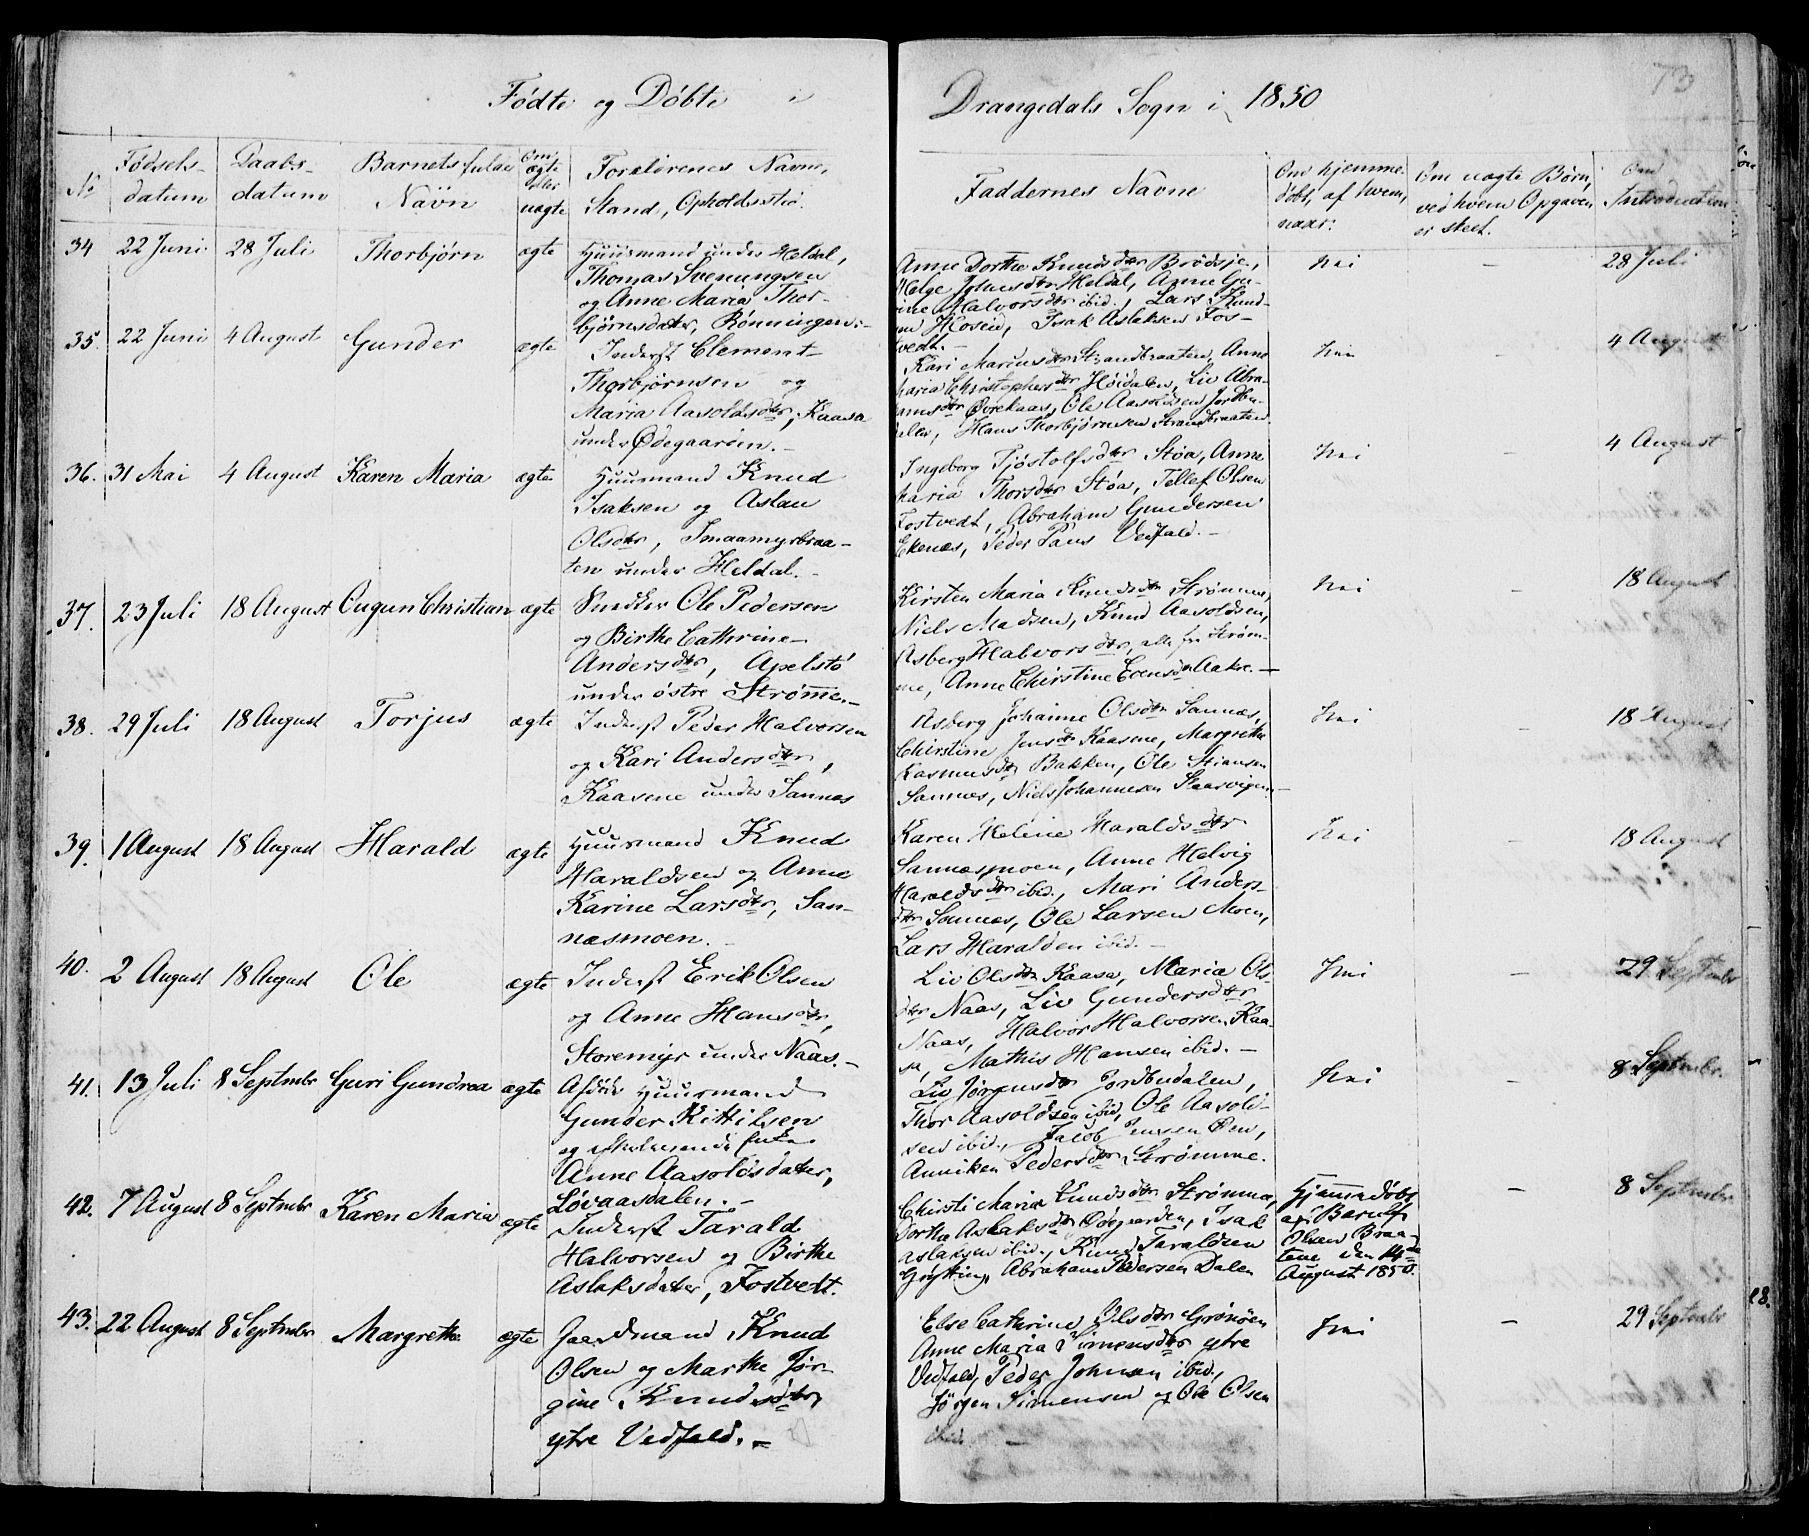 Fødte og Døbte i Drangedals Sogn i 1850
73
No
Fødsels-
datum
Daabs-
datum
Barnets fulde
Navn
Om
ægte
eller
uægte
Forældrenes Navne,
Stand, Opholdssted.
Faddernes Navne
Om hjemme-
døbt, af hvem,
naar.
Om uægte Børn,
ved hvem Opgaven
er skeet.
Om
Introduction
34 22 Juni 28 Juli Thorbjørn ægte
Huusmand under Heldal,
Thomas Svenungsen
og Anne Maria Thor-
bjørnsdater, Rønningen.-
Anne Dorthe Knudsdtr Brødsjø,
Helge Johnsdtr Heldal, Anne Gu-
rine Halvorsdtr ibid., Lars Knud-
sen Hoseid, Isak Aslaksen Fos-
tvedt.-
Nei - 28 Juli
35. 22 Juni 4 August Gunder ægte
Inderst Clement
Thorbjørnsen og
Maria Aasoldsdtr, Kaasa
under Ødegaarden.-
Kari Mariusdtr Strandbraaten, Anne
Maria Christophersdtr Høidalen, Liv Abra-
hamsdtr Øvrekaas, Ole Aasoldsen Jordbu-
dalen, Hans Thorbjørnsen Strandbraaten.
Nei - 4 August
36. 31 Mai 4 August Karen Maria ægte
Huusmand Knud
Isaksen og Aslau
Olsdtr, Smaamyrbraa-
ten under Heldal.-
Ingeborg Tjøstolfsdtr Støa, Anne
Maria Thorsdtr Støa, Tellef Olsen
Fostvedt, Abraham Gundersen
Ekenæs, Peder Paus Vedfald.-
Nei - 4 August
37. 23 Juli 18 August Ougun Christian ægte
Smeden Ole Pedersen
og Birthe Cathrine
Andersdtr, Apelstø
under østre Strømme.-
Kirsten Maria Knudsdtr Strømme,
Niels Madsen, Knud Aasoldsen,
Asberg Halvorsdtr, alle fra Strøm-
me, Anne Christine Evensdtr Aakre.-
Nei - 18 August
38. 29 Juli 18 August Torjus ægte
Inderst Peder Halvorsen
og Kari Andersdtr,
Kaasene under Sannæs
Asberg Johanne Olsdtr Sannæs,
Christine Jensdtr Kaasene, Margrethe
Rasmusdtr Bakken, Ole Stiansen
Sannæs, Niels Johannesen Skaarvigen.-
Nei - 18 August
39. 1 August 18 August Harald ægte
Huusmand Knud
Haraldsen og Anne
Karine Larsdtr, San-
næsmoen.-
Karen Heline Haraldsdtr
Sannæsmoen, Anne Helvig
Haraldsdtr ibid., Mari Anders-
dtr Sannæs, Ole Larsen Moen,
Lars Haralden ibid.-
Nei - 18 August
40. 2 August 18 August Ole ægte
Inderst Erik Olsen
og Anne Hansdtr,
Storemyr under Naas.-
Liv Olsdtr Kaasa, Maria Ols-
dtr Naas, Liv Gundersdtr
Naas, Halvor Halvorsen Kaa-
sa, Mathis Hansen ibid.-
Nei - 29 Septmbr
41. 13 Juli 8 Septmbr Guri Gundrea ægte
Afdøde Huusmand
Gunder Kittilsen
og efterlevende Enke
Anne Aasoldsdater,
Løvaasdalen.-
Liv Jørgensdtr Jordbudalen,
Thor Aasoldsen ibid, Ole Aasold-
sen ibid., Jacob Jensen Øen,
Anniken Pedersdtr Strømme.
Nei - 8 Septmbr
42. 7 August 8 Septmbr Karen Maria ægte
Inderst Tarald
Halvorsen og Birthe
Aslaksdater, Fostvedt.
Chirsti Maria Knudsdtr Strømme,
Dorthe Aslaksdtr Ødegaarden, Isak
Aslaksen ibid., Knud Taraldsen
Grytting, Abraham Pedersen Dalen
Hjemmedøbt
af Berulf
Olsen Braa-
tene den 14de
August 1850.
- 8 Septmbr
43. 22 August 8 Septmbr Margrethe ægte
Gaardmand Knud
Olsen og Marthe Jør-
gine Knudsdtr
ytre Vedfald.-
Else Cathrine Olsdtr Grønåen
Anne Maria Simensdtr ytre
Vedfald, Peder Johnsen ibid.,
Jörgen Simensen og Ole Olsen
ibid. -
Nei - 29 Septmbr
18.